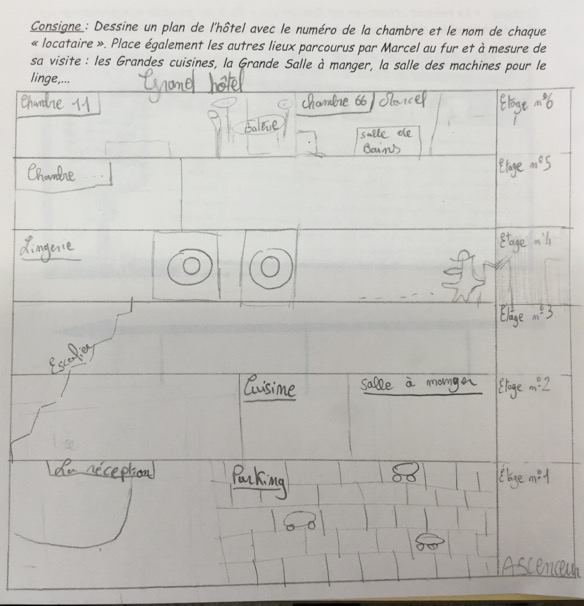 Consigne : Dessine un plan de l'hôtel avec le numéro de la chambre et le nom de chaque
« locataire ». Place également les autres lieux parcourus par Marcel au fur et à mesure de
sa visite : les Grandes cuisines, la Grande Salle à manger, la salle des machines pour le
linge,...
Grand hôtel
Chambre 11
chambre 66 / Marcel
Etage n°6
salle de
Bains
Chambre
Etage n°5
Lingerie
Etage n°4
Etage n°3
Escalier
Cuisine
salle à manger
Etage n°2
La réception
Parking
Etage n°1
Ascenceur